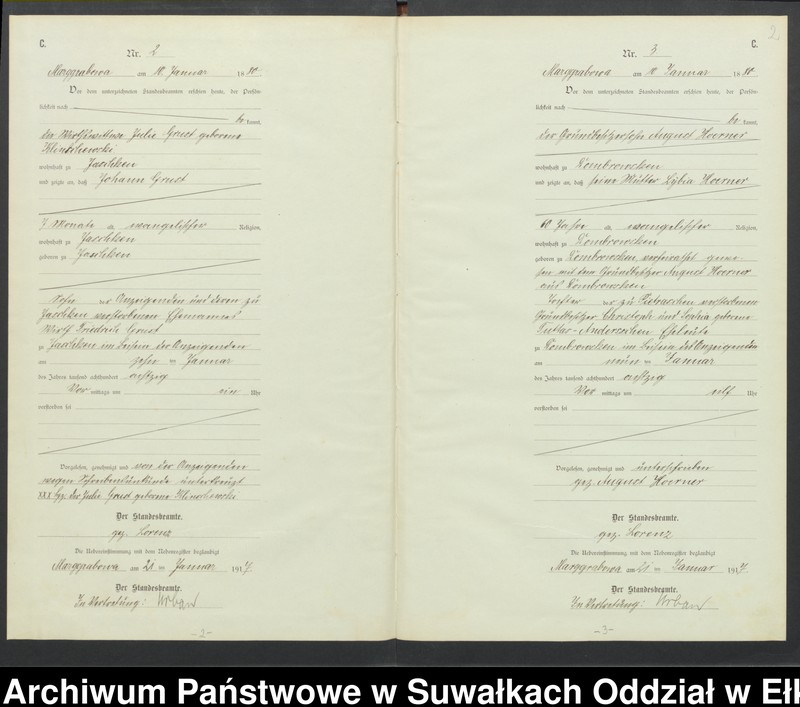 C.
Nr. 2
Marggrabowa am 10. Januar 1880
Vor dem unterzeichneten Standesbeamten erschien heute, der Persön-
lichkeit nach
be kannt,
die Wirthswittwe Julie Grust geborene
wohnhaft zu Jaschken
und zeigte an, daß Johann Grust
7 Monate alt, evangelischer Religion,
wohnhaft zu Jaschken
geboren zu Jaschken
Sohn der Anzeigenden und deren zu
Jaschken verstorbenen Ehemannes
Wirth Friedrich Grust
zu Jaschken im Beisein der Anzeigenden
am zehn ten Januar
des Jahres tausend achthundert achtzig
Vor mittags um ein Uhr
verstorben sei
Vorgelesen, genehmigt und von der Anzeigenden
wegen Schreibensunkunde unterkreuzt
XXX der Julie Grust geborene
Der Standesbeamte.
gez. Lorenz
Die Uebereinstimmung mit dem Nebenregister beglaubigt
Marggrabowa am ten Januar 1917
Der Standesbeamte.
In Vertretung: Urban
-2-
2
C.
Nr. 3
Marggrabowa am 10 Januar 1880
Vor dem unterzeichneten Standesbeamten erschien heute, der Persön-
lichkeit nach
be kannt,
der Grundbesitzersohn August Hoerner
wohnhaft zu Dombrowsken
und zeigte an, daß seine Mutter Lybia Hoerner
60 Jahre alt, evangelischer Religion,
wohnhaft zu Dombrowsken
geboren zu Dombrowsken, verheirathet gewe-
sen mit dem Grundbesitzer August Hoerner
aus Dombrowsken
Tochter der zu Pietraschen verstorbenen
Grundbesitzer Christoph und Sophia geborene
Eheleute
zu Dombrowsken im Beisein des Anzeigenden
am neun ten Januar
des Jahres tausend achthundert achtzig
Vor mittags um elf Uhr
verstorben sei
Vorgelesen, genehmigt und unterschrieben
gez. August Hoerner
Der Standesbeamte.
gez. Lorenz
Die Uebereinstimmung mit dem Nebenregister beglaubigt
Marggrabowa am ten Januar 1917
Der Standesbeamte.
In Vertretung: Urban
-3-
Archiwum Państwowe w Suwałkach Oddział w Ełk